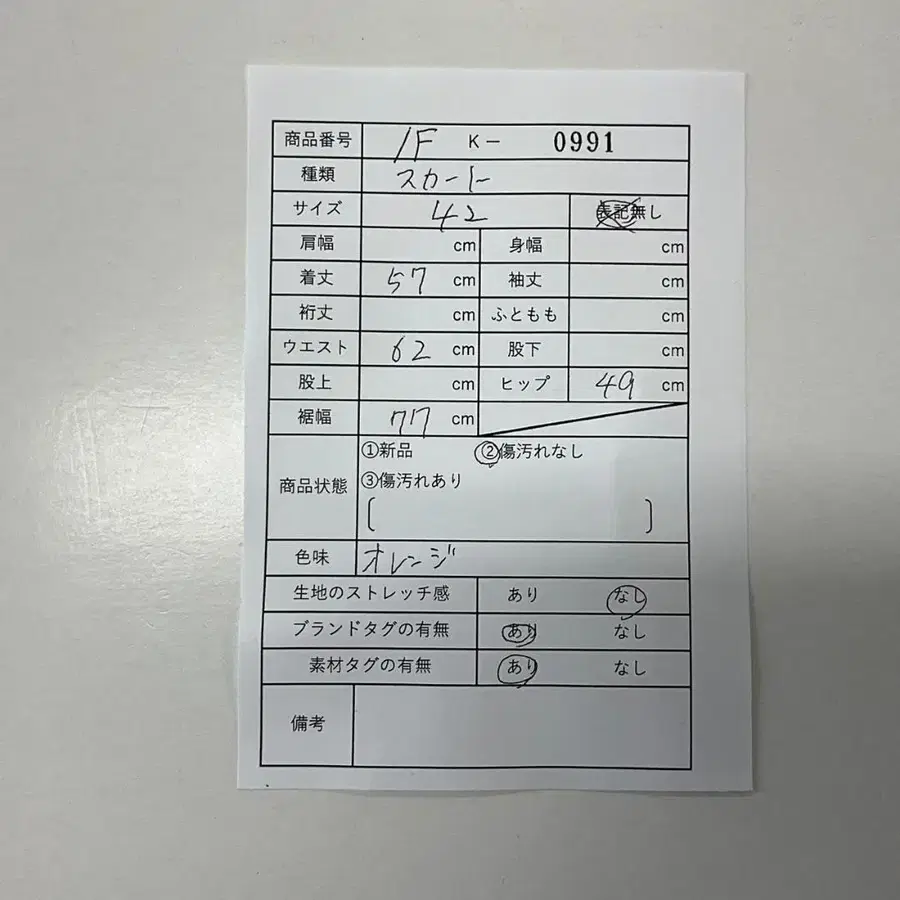 商品番号 1F K- 0991
種類 スカート
サイズ 42 表記無し
肩幅 cm 身幅 cm
着丈 57 cm 袖丈 cm
裄丈 cm ふともも cm
ウエスト 62 cm 股下 cm
股上 cm ヒップ 49 cm
裾幅 77 cm
商品状態 ①新品 ②傷汚れなし
③傷汚れあり
[ ]
色味 オレンジ
生地のストレッチ感 あり なし
ブランドタグの有無 あり なし
素材タグの有無 あり なし
備考